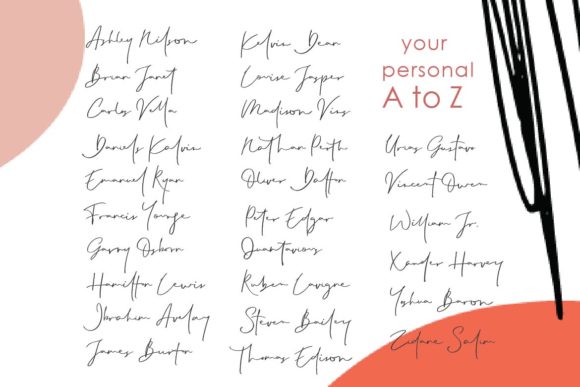 Ashley Nilson
Brian Janet
Carlos Vella
Daniels Kalvin
Emanuel Ryan
Francis Younge
Garry Osborn
Hamilton Lewis
Ibrahim Avelay
James Burton
Kelvin Dean
Louise Jasper
Madison Vins
Nathan Perth
Oliver Dalton
Peter Edgar
Quantavious
Ruben Lavigne
Steven Bailey
Thomas Edison
your
personal
A to Z
Urias Gustavo
Vincent Owen
William Jr.
Xander Harvey
Yoshua Baron
Zidane Salim